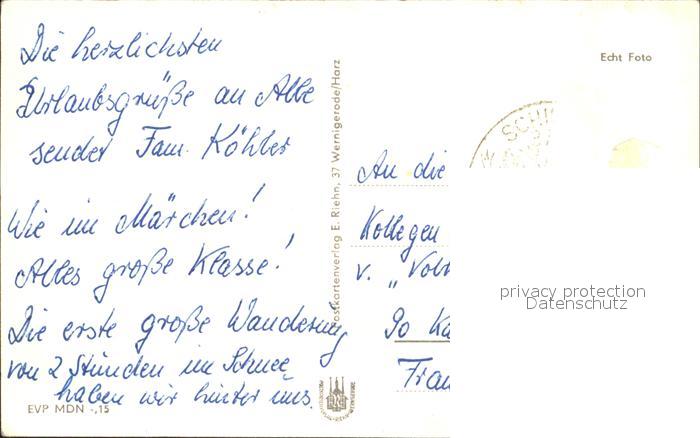 Die herzlichsten
Urlaubsgrüße an Alle
sendet Fam. Köhler
Wie im Märchen!
Alles große Klasse!
Die erste große Wanderung
von 2 Stunden im Schnee
haben wir hinter uns.
EVP MDN -,15
Postkartenverlag E. Riehn, 37 Wernigerode/Harz
Echt Foto
SCHI
An die
Kollegen
v. „Volk
90 Ka
Frau
privacy protection
Datenschutz